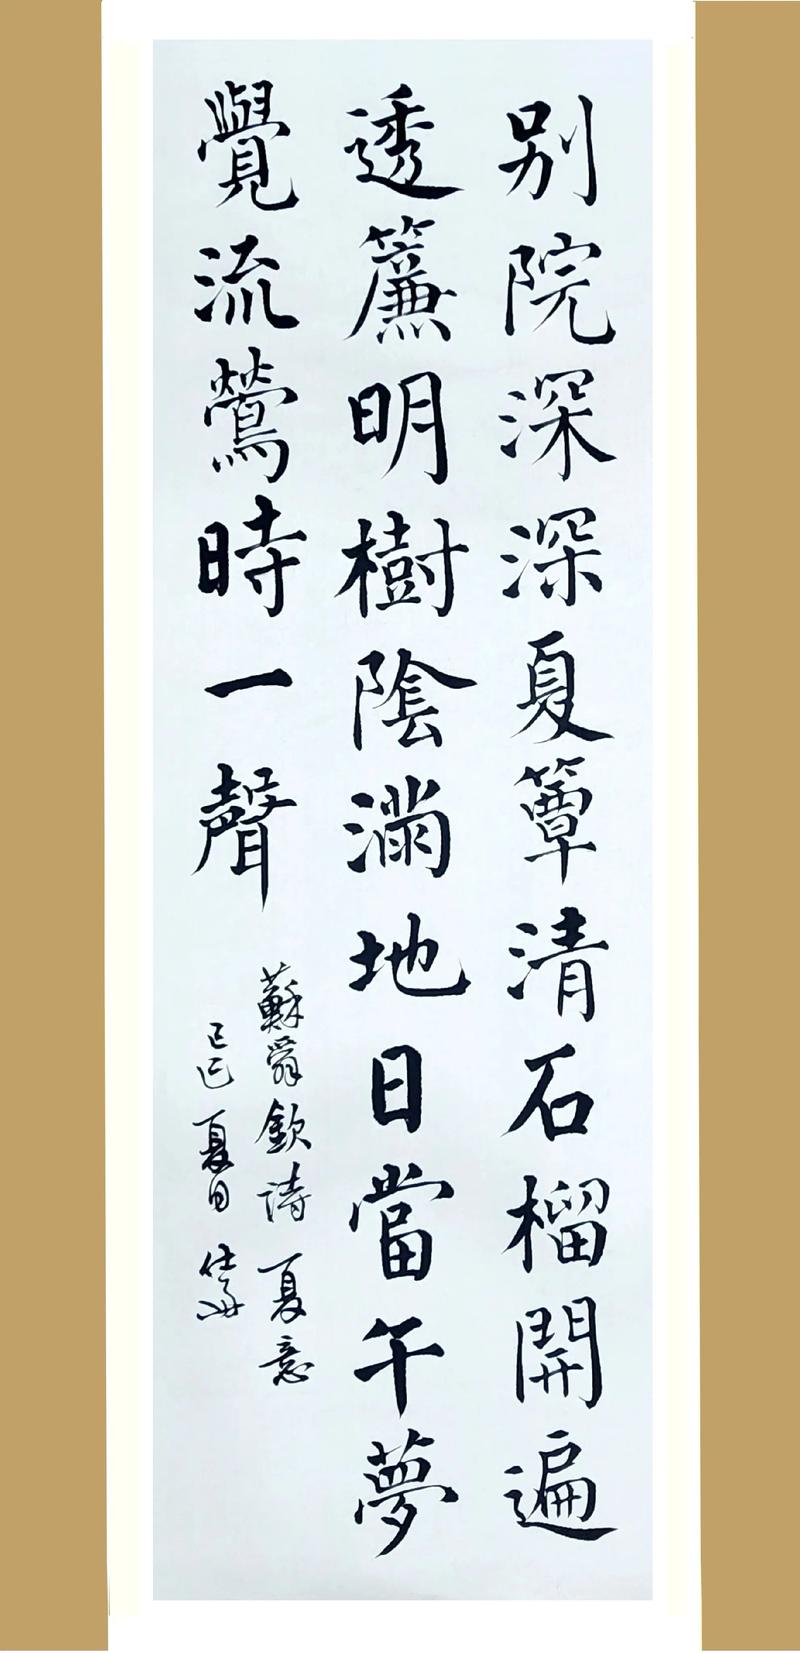 别院深深夏簟清石榴開遍
透簾明樹陰滿地日當午夢
覺流鶯時一聲
蘇舜欽詩 夏意
乙巳 夏日